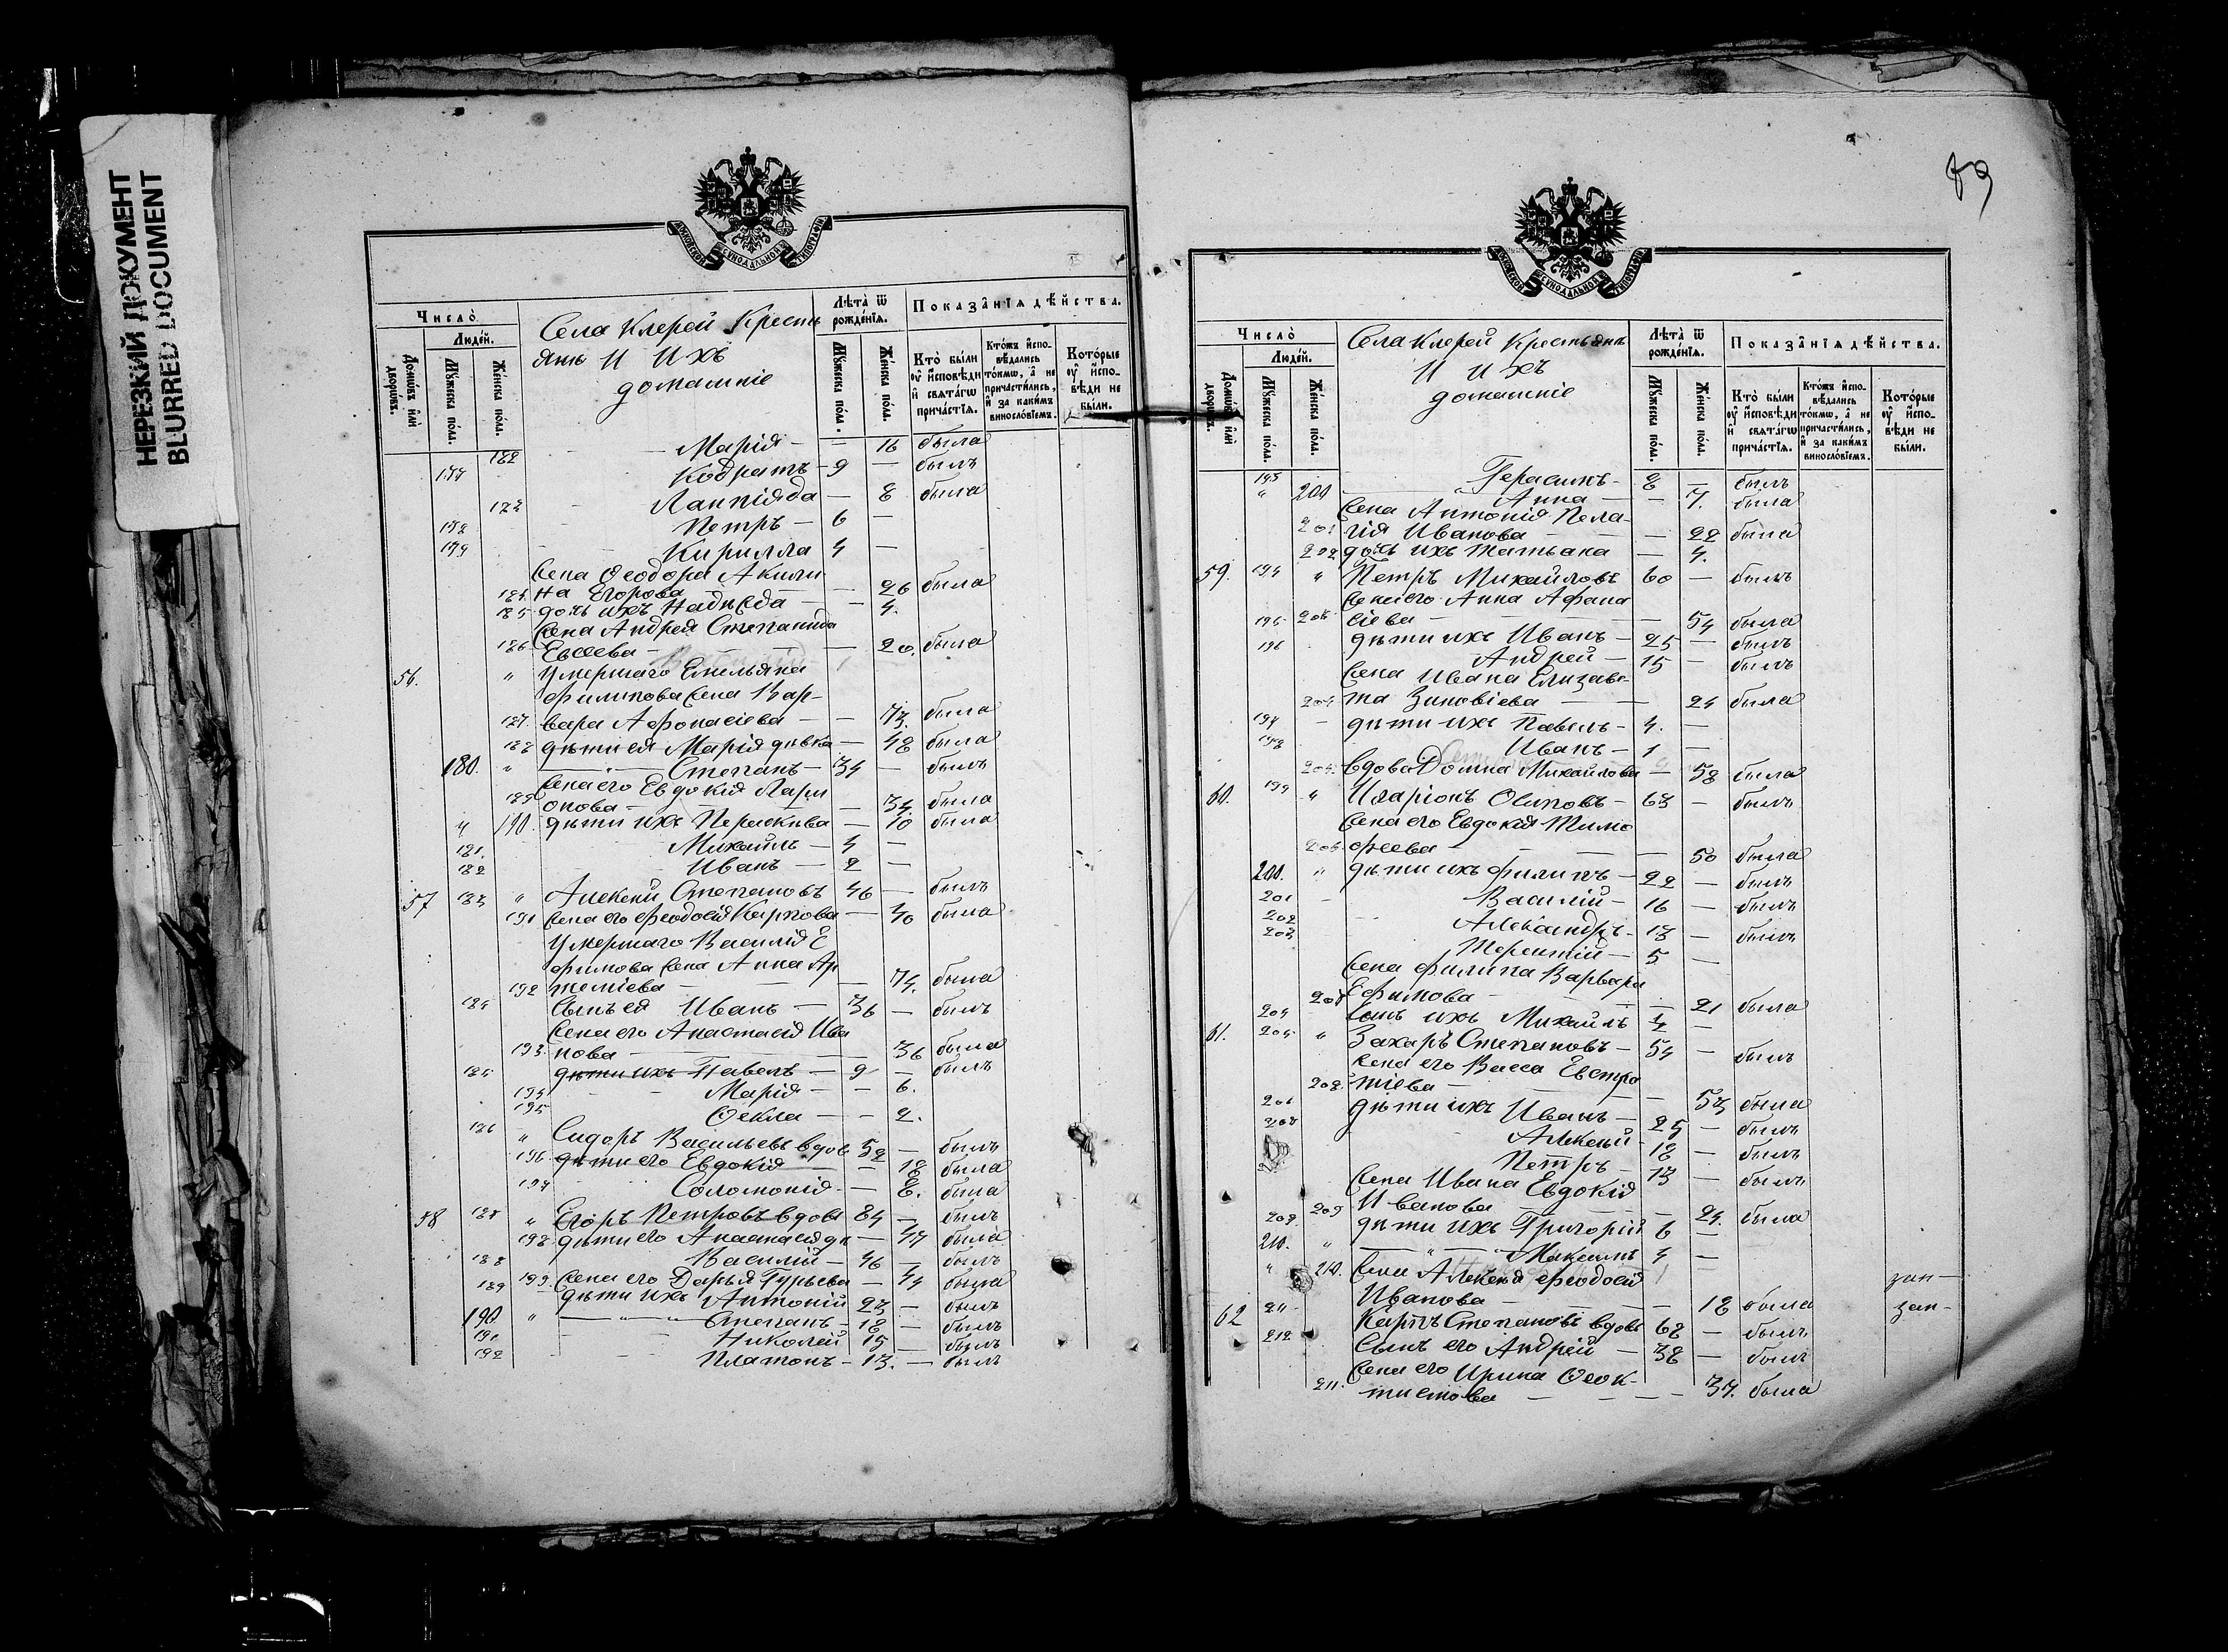 НЕРЕЗКИЙ ДОКУМЕНТ
BLURRED DOCUMENT
Число̀
Люде́й.
Домѡ́въ и҆лѝ дворѡ́въ.
Мꙋ́жеска по́ла.
Же́нска по́ла.
Села Клерей Кресть
янъ И Ихъ
домашніе
Лѣ́та ѿ рожде́нїѧ.
Мꙋ́жеска по́ла.
Же́нска по́ла.
Показа̑нїѧ дѣ́йства.
Кто̀ бы́ли ᲂу҆ и҆́сповѣди и҆ свѧта́гѡ прича́стїѧ.
Кто́жъ и҆спо- вѣ́дались то́кмѡ, а҆ не причасти́лись, и҆ за каки́мъ винosло́вїемъ.
Кото́рые ᲂу҆ и҆спо- вѣди не бы́ли.
182 Марія — — 16 была
177 Кодратъ — 9 — былъ
183 — 8 была
178 Петръ — 6 —
179 Кирилла 4 —
Жена Ѳеодора Акили
184 на Егорова — 26 была
185 дочь ихъ Надежда — — 4.
Жена Андрея Степанида
186 Евсеева — — 20. была
56. " Умершаго Емельяна
Филипова жена Вар-
187. вара Афонасіева — — 73. была
188 дѣти ея Марія дѣвка — 48 была
180. " — Степанъ — 34 — былъ
Жена его Евдокія Лари
189 онова — — 34 была
" 190. дѣти ихъ Перасковa — 10 была
181. Михаилъ — 4 —
182 Иванъ — 2 —
57 183 " Алексей Степановъ 46 — былъ
191 Жена его Феодосія Карпова — 40 была
Умершаго Василія Е
фимова жена Анна Ар
192 темiева — — 74. была
184 Сынъ ея Иванъ — 36 — былъ
Жена его Анастасія Ива
193. нова — — 36 была
185 дѣти ихъ Павелъ — 9 — былъ
194 Марія — — 6.
195 Ѳекла — — 2.
186 " Сидоръ Васильевъ вдов 52 — былъ
196. дѣти его Евдокія — — 18 была
197 Соломонія — — 8. была
58 187 " Егоръ Петровъ вдовъ 84 — былъ
198 дѣти его Анастасія дѣ — 47 была
188 Василій — 46 — былъ
199 Жена его Дарья Гурьева — 44 была
189 дѣти ихъ Антоній 23 — былъ
190 " — " — Степанъ — 18 — былъ
191 Николай 15 — былъ
192 Платонъ — 13. — былъ
89
Число̀
Люде́й.
Домѡ́въ и҆лѝ дворѡ́въ.
Мꙋ́жеска по́ла.
Же́нска по́ла.
Села Клерей Крестьянъ
И ихъ
домашніе
Лѣ́та ѿ рожде́нїѧ.
Мꙋ́жеска по́ла.
Же́нска по́ла.
Показа̑нїѧ дѣ́йства.
Кто̀ бы́ли ᲂу҆ и҆́сповѣди и҆ свѧта́гѡ прича́стїѧ.
Кто́жъ и҆спо- вѣ́дались то́кмѡ, а҆ не причасти́лись, и҆ за каки́мъ винosло́вїемъ.
Кото́рые ᲂу҆ и҆спо- вѣди не бы́ли.
193 Герасимъ — 8 — былъ
" 200 Анна — — 7. была
Жена Антонія Пела-
201 гія Иванова — — 22 была
202 дочь ихъ Татьана — 4.
59. 194 " Петръ Михайловъ 60 — былъ
Жена его Анна Афана
203 сіева — — 54 была
195 дѣти ихъ Иванъ — 25 — былъ
196 Андрей — 15 — былъ
Жена Ивана Елизаве
204 та Зиновіева — — 24 была
197 дѣти ихъ Павелъ — 4. —
198 Иванъ — 1 —
205. вдова Домна Михайлова — 58 была
60. 199 " Иларіонъ Осиповъ — 63 — былъ
Жена его Евдокія Тимо
206 феева — — 50 была
200. " дѣти ихъ Филипъ — 22 — былъ
201 Василій — 16 — былъ
202 Александръ — 13 — былъ
203 Терентій — 5 —
Жена Филипа Варвара
207 Ефимова — — 21 была
204 Сынъ ихъ Михаилъ —
61. 205 " Захаръ Степановъ — 54 — былъ
Жена его Васса Евстра
208. тіева — — 53 была
206 дѣти ихъ Иванъ — 25 — былъ
207 Алексей — 18 — былъ
Петръ — 13 — былъ
Жена Ивана Евдокія
209 Иванова — — 24. была
209. дѣти ихъ Григорій 6 —
210. " — " — Максимъ 4 —
" 210. Жена Алексея Феодосія
Иванова — — 18 была
62 211 Карпъ Степановъ вдовъ 68 — былъ
212 Сынъ его Андрей — 38 — былъ
Жена его Ирина Ѳеок-
211. тистова — — — 37. была